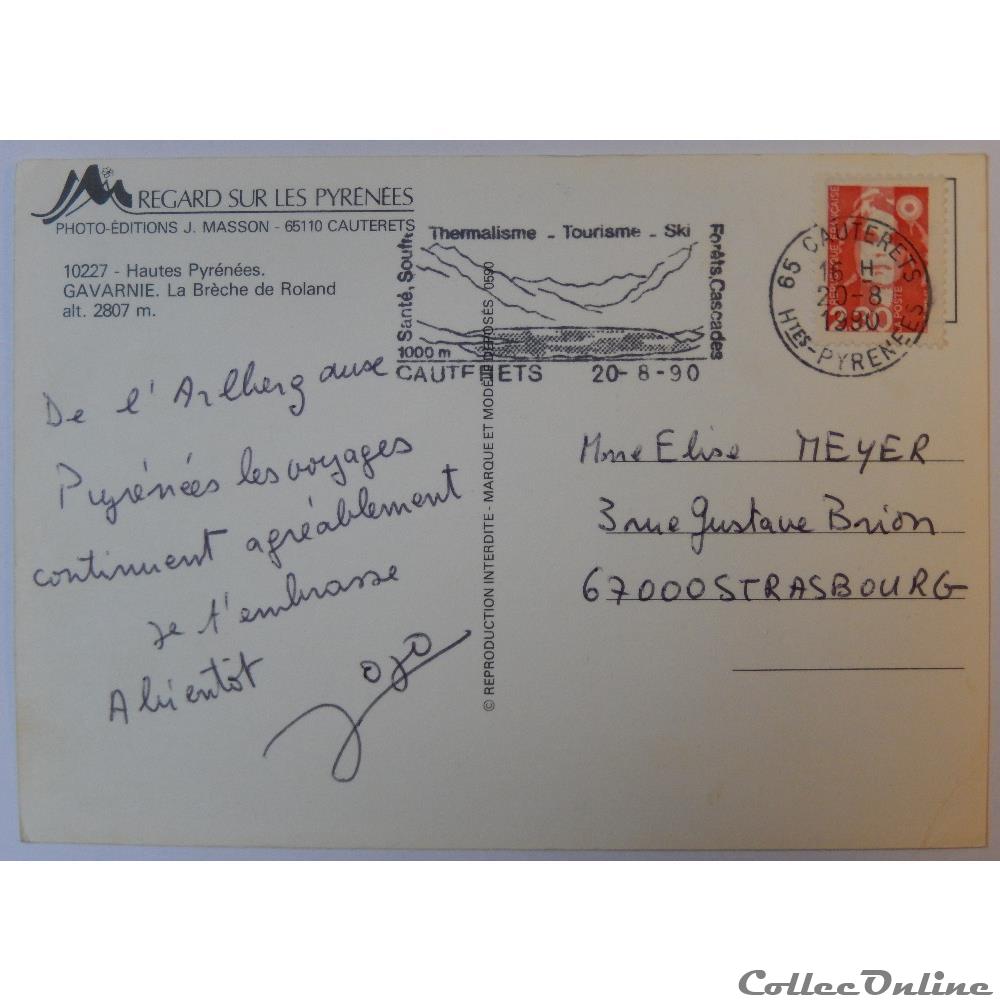 REGARD SUR LES PYRÉNÉES
PHOTO-ÉDITIONS J. MASSON - 65110 CAUTERETS
10227 - Hautes Pyrénées.
GAVARNIE. La Brèche de Roland
alt. 2807 m.
Thermalisme - Tourisme - Ski
Santé, Souffle
Forêts, Cascades
1000 m
CAUTERETS 20-8-90
65 CAUTERETS
16 H
20-8
1990
HTES-PYRENEES
REPUBLIQUE FRANÇAISE
LA POSTE
De l'Arlberg aux
Pyrénées les voyages
continuent agréablement
je t'embrasse
A bientôt
Jojo
© REPRODUCTION INTERDITE - MARQUE ET MODÈLE DÉPOSÉS 0590
Mme Elise MEYER
3 rue Gustave Brion
67000 STRASBOURG
CollecOnline